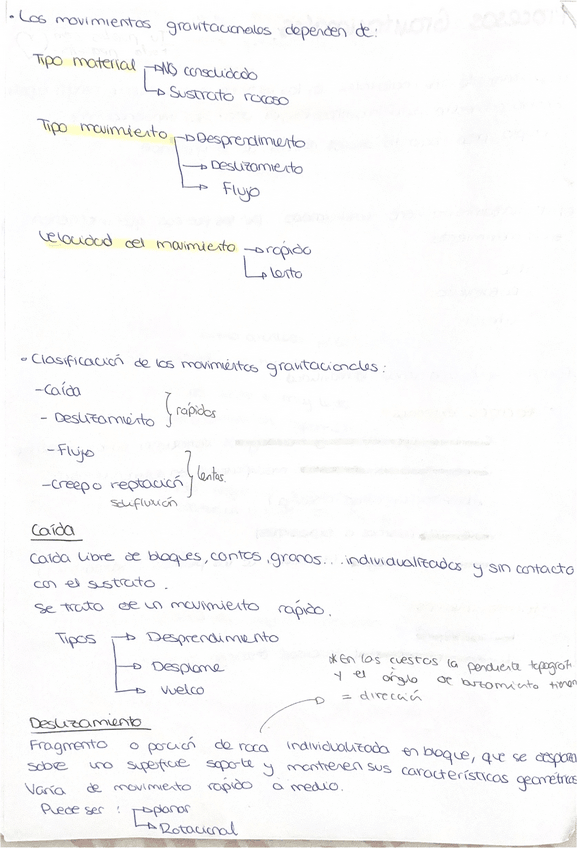 • Los movimientos gravitacionales dependen de:
Tipo material → No consolidado
→ Sustrato rocoso
Tipo movimiento → Desprendimento
→ Deslizamiento
→ Flujo
Velocidad del movimiento → rápido
→ lento
• Clasificación de los movimientos gravitacionales:
- Caída
- Deslizamiento } rápidos
- Flujo
- Creep o reptación } lentos.
solifluxión
Caída
Caída libre de bloques, cantos, granos... individualizados y sin contacto
con el sustrato.
Se trata de un movimiento rápido.
Tipos → Desprendimento
→ Desplome
→ Vuelco
*En las cuestas la pendiente topográfi
y el ángulo de buzamiento tienen
= dirección
Deslizamiento
Fragmento o porción de roca individualizada en bloque, que se despla
sobre una superficie soporte y mantienen sus características geométricas
Varía de movimiento rápido a medio.
Puede ser: → planar
→ Rotacional